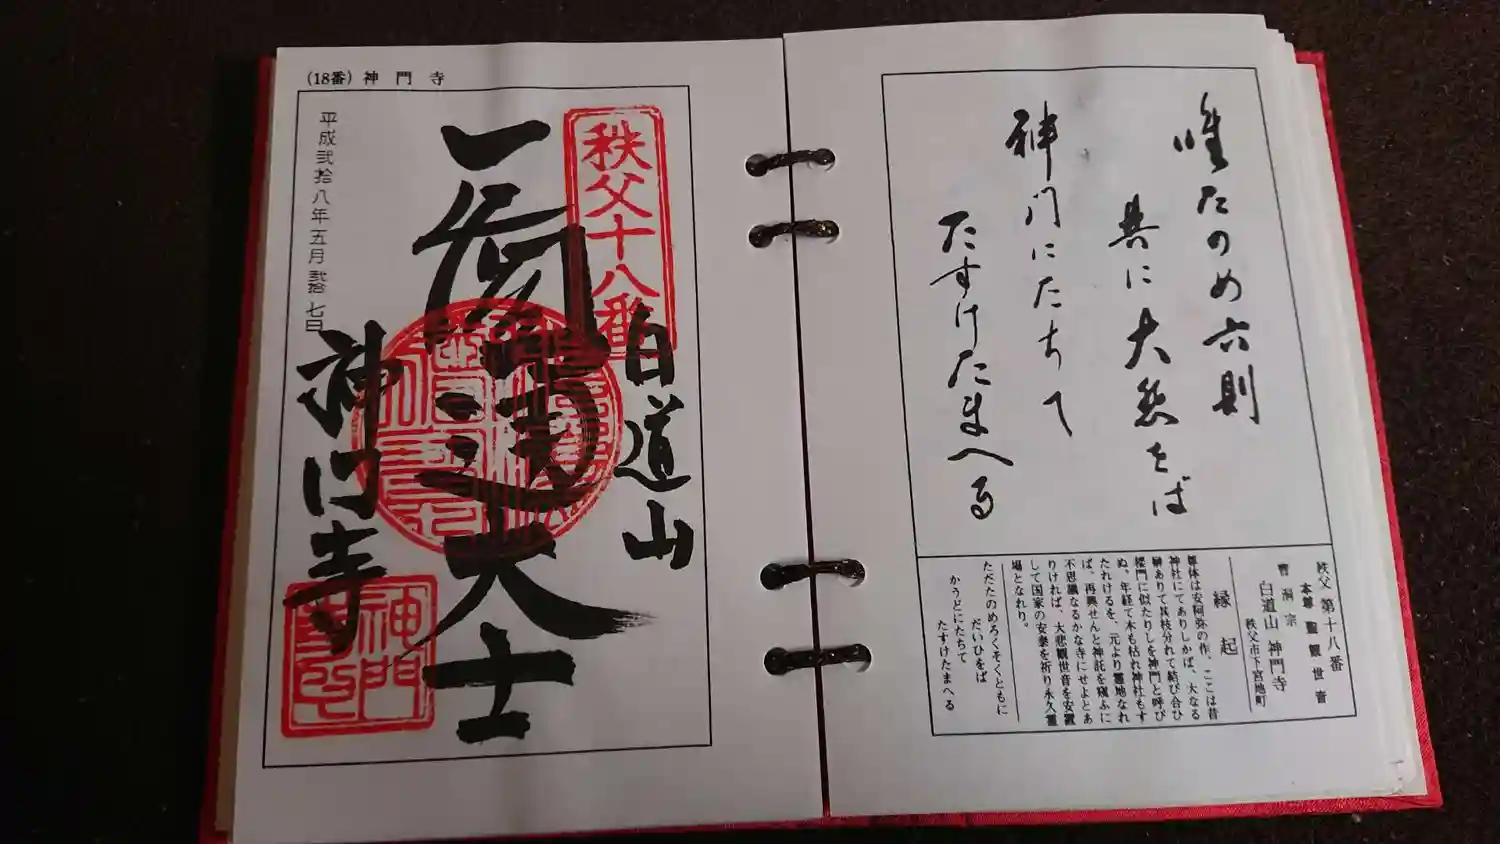 唯たのめ六則
共に大悲をば
神門にたちて
たすけたまへる
秩父 第十八番
本尊 聖観世音
曹洞宗
白道山 神門寺
秩父市下宮地町
縁起
尊体は安阿弥の作、ここは昔
神社にてありしかば、大なる
榊ありて其枝分れて結び合ひ
楼門に似たりしを神門と呼び
ぬ、年経て木も枯れ神社もす
たれけるを、元より霊地なれ
ば、再興せんと神託を窺ふに
不思議なるかな寺にせよとあ
りければ、大悲観世音を安置
して国家の安泰を祈り永久霊
場となれり。
ただたのめろくそくともに
だいひをば
かうどにたちて
たすけたまへる
(18番) 神門寺
秩父十八番
白道山
大士
神門寺
神門寺印
平成弐拾八年五月弐拾七日